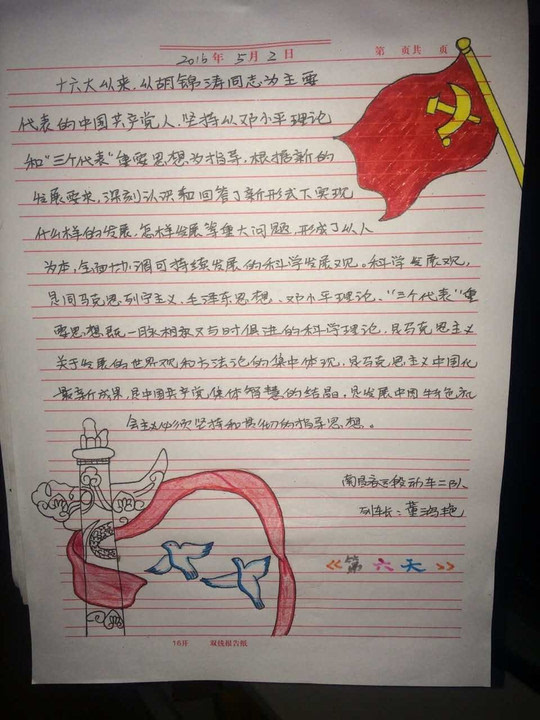 2016年5月2日 第 页共 页
十六大以来,以胡锦涛同志为主要
代表的中国共产党人,坚持以邓小平理论
和“三个代表”重要思想为指导,根据新的
发展要求,深刻认识和回答了新形式下实现
什么样的发展,怎样发展等重大问题,形成了以人
为本,全面协调可持续发展的科学发展观。科学发展观,
是同马克思列宁主义,毛泽东思想、邓小平理论、“三个代表”重
要思想既一脉相承又与时俱进的科学理论,是马克思主义
关于发展的世界观和方法论的集中体现,是马克思主义中国化
最新成果,是中国共产党集体智慧的结晶,是发展中国特色社
会主义必须坚持和贯彻的指导思想。
南昌客运段动车二队
列车长:董鸿艳
《第六天》
16开 双线报告纸